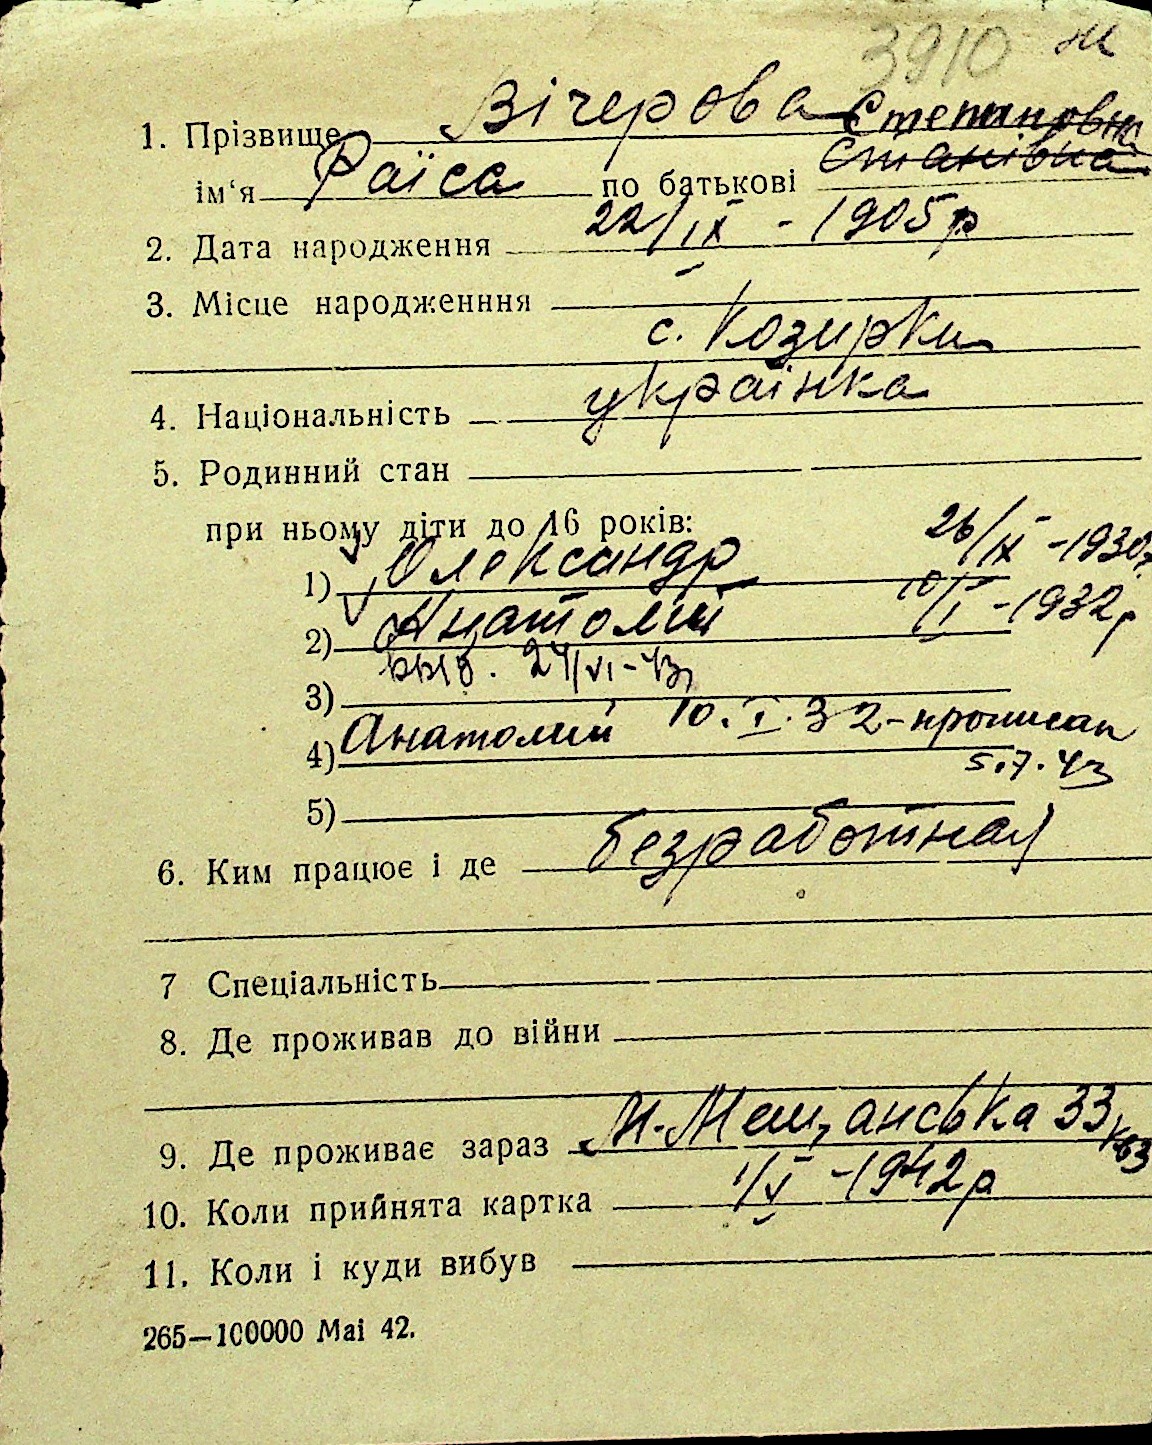 3910 ж
1. Прізвище Вічерова Степановна
ім‘я Раїса по батькові Єтанівна
2. Дата народження 22/IX - 1905 р
3. Місце народженння
с. Козирки
4. Національність українка
5. Родинний стан
при ньому діти до 16 років:
1) Олександр 26/IX - 1930 р
2) Анатолій 10/I - 1932 р
выб. 24/VI - 43
3)
4) Анатолий 10.I.32 - прописан
5.7.43
5)
6. Ким працює і де безработная
7 Спеціальність
8. Де проживав до війни
9. Де проживає зараз М-Мещанська 33 к 63
10. Коли прийнята картка 1/V - 1942 р
11. Коли і куди вибув
265—100000 Mai 42.